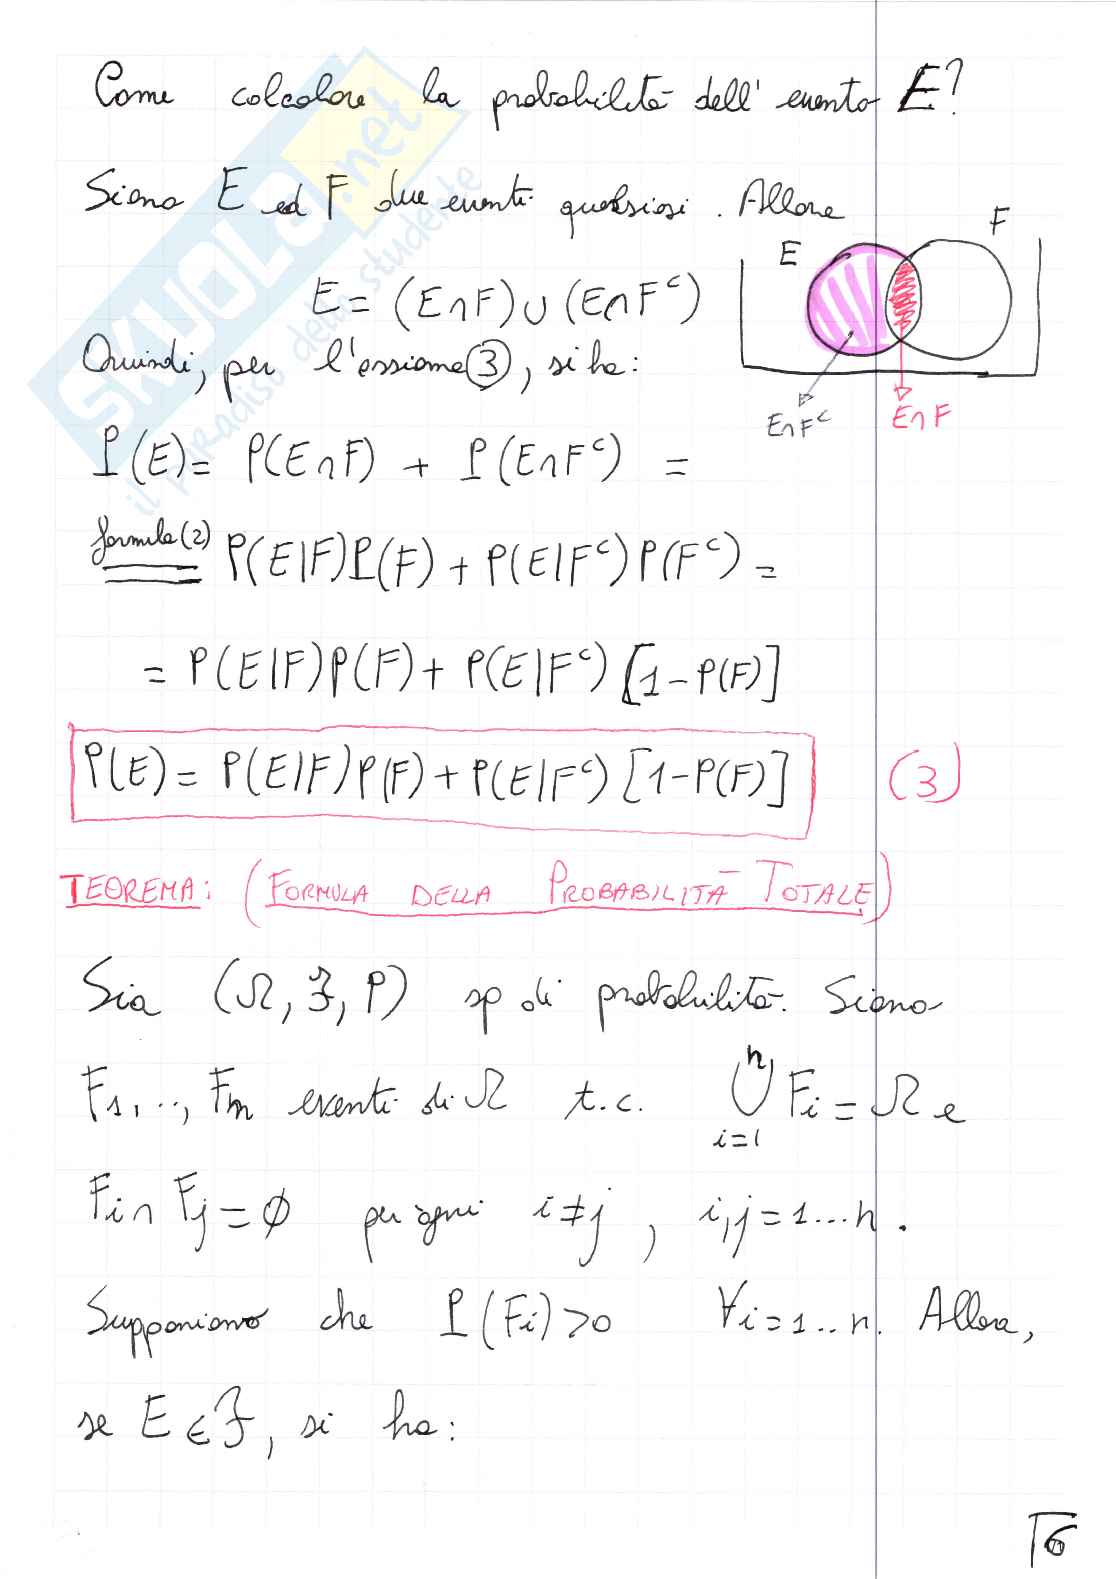 Come calcolare la probabilità dell'evento E?
Siano E ed F due eventi qualsiasi. Allora
E = (E∩F) ∪ (E∩F^c)
E
F
E∩F^c
E∩F
Quindi, per l'assioma ③, si ha:
P(E) = P(E∩F) + P(E∩F^c) =
formula (2) = P(E|F)P(F) + P(E|F^c)P(F^c) =
= P(E|F)P(F) + P(E|F^c) [1-P(F)]
P(E) = P(E|F)P(F) + P(E|F^c) [1-P(F)] (3)
TEOREMA: (FORMULA DELLA PROBABILITÀ TOTALE)
Sia (Ω, F, P) sp di probabilità. Siano
F1,.., Fn eventi di Ω t.c. ⋃_{i=1}^{n} Fi = Ω e
Fi ∩ Fj = ∅ per ogni i≠j, i,j=1...n.
Supponiamo che P(Fi)>0 ∀i=1..n. Allora,
se E ∈ F, si ha:
6
SKUOLA.net
il paradiso dello studente